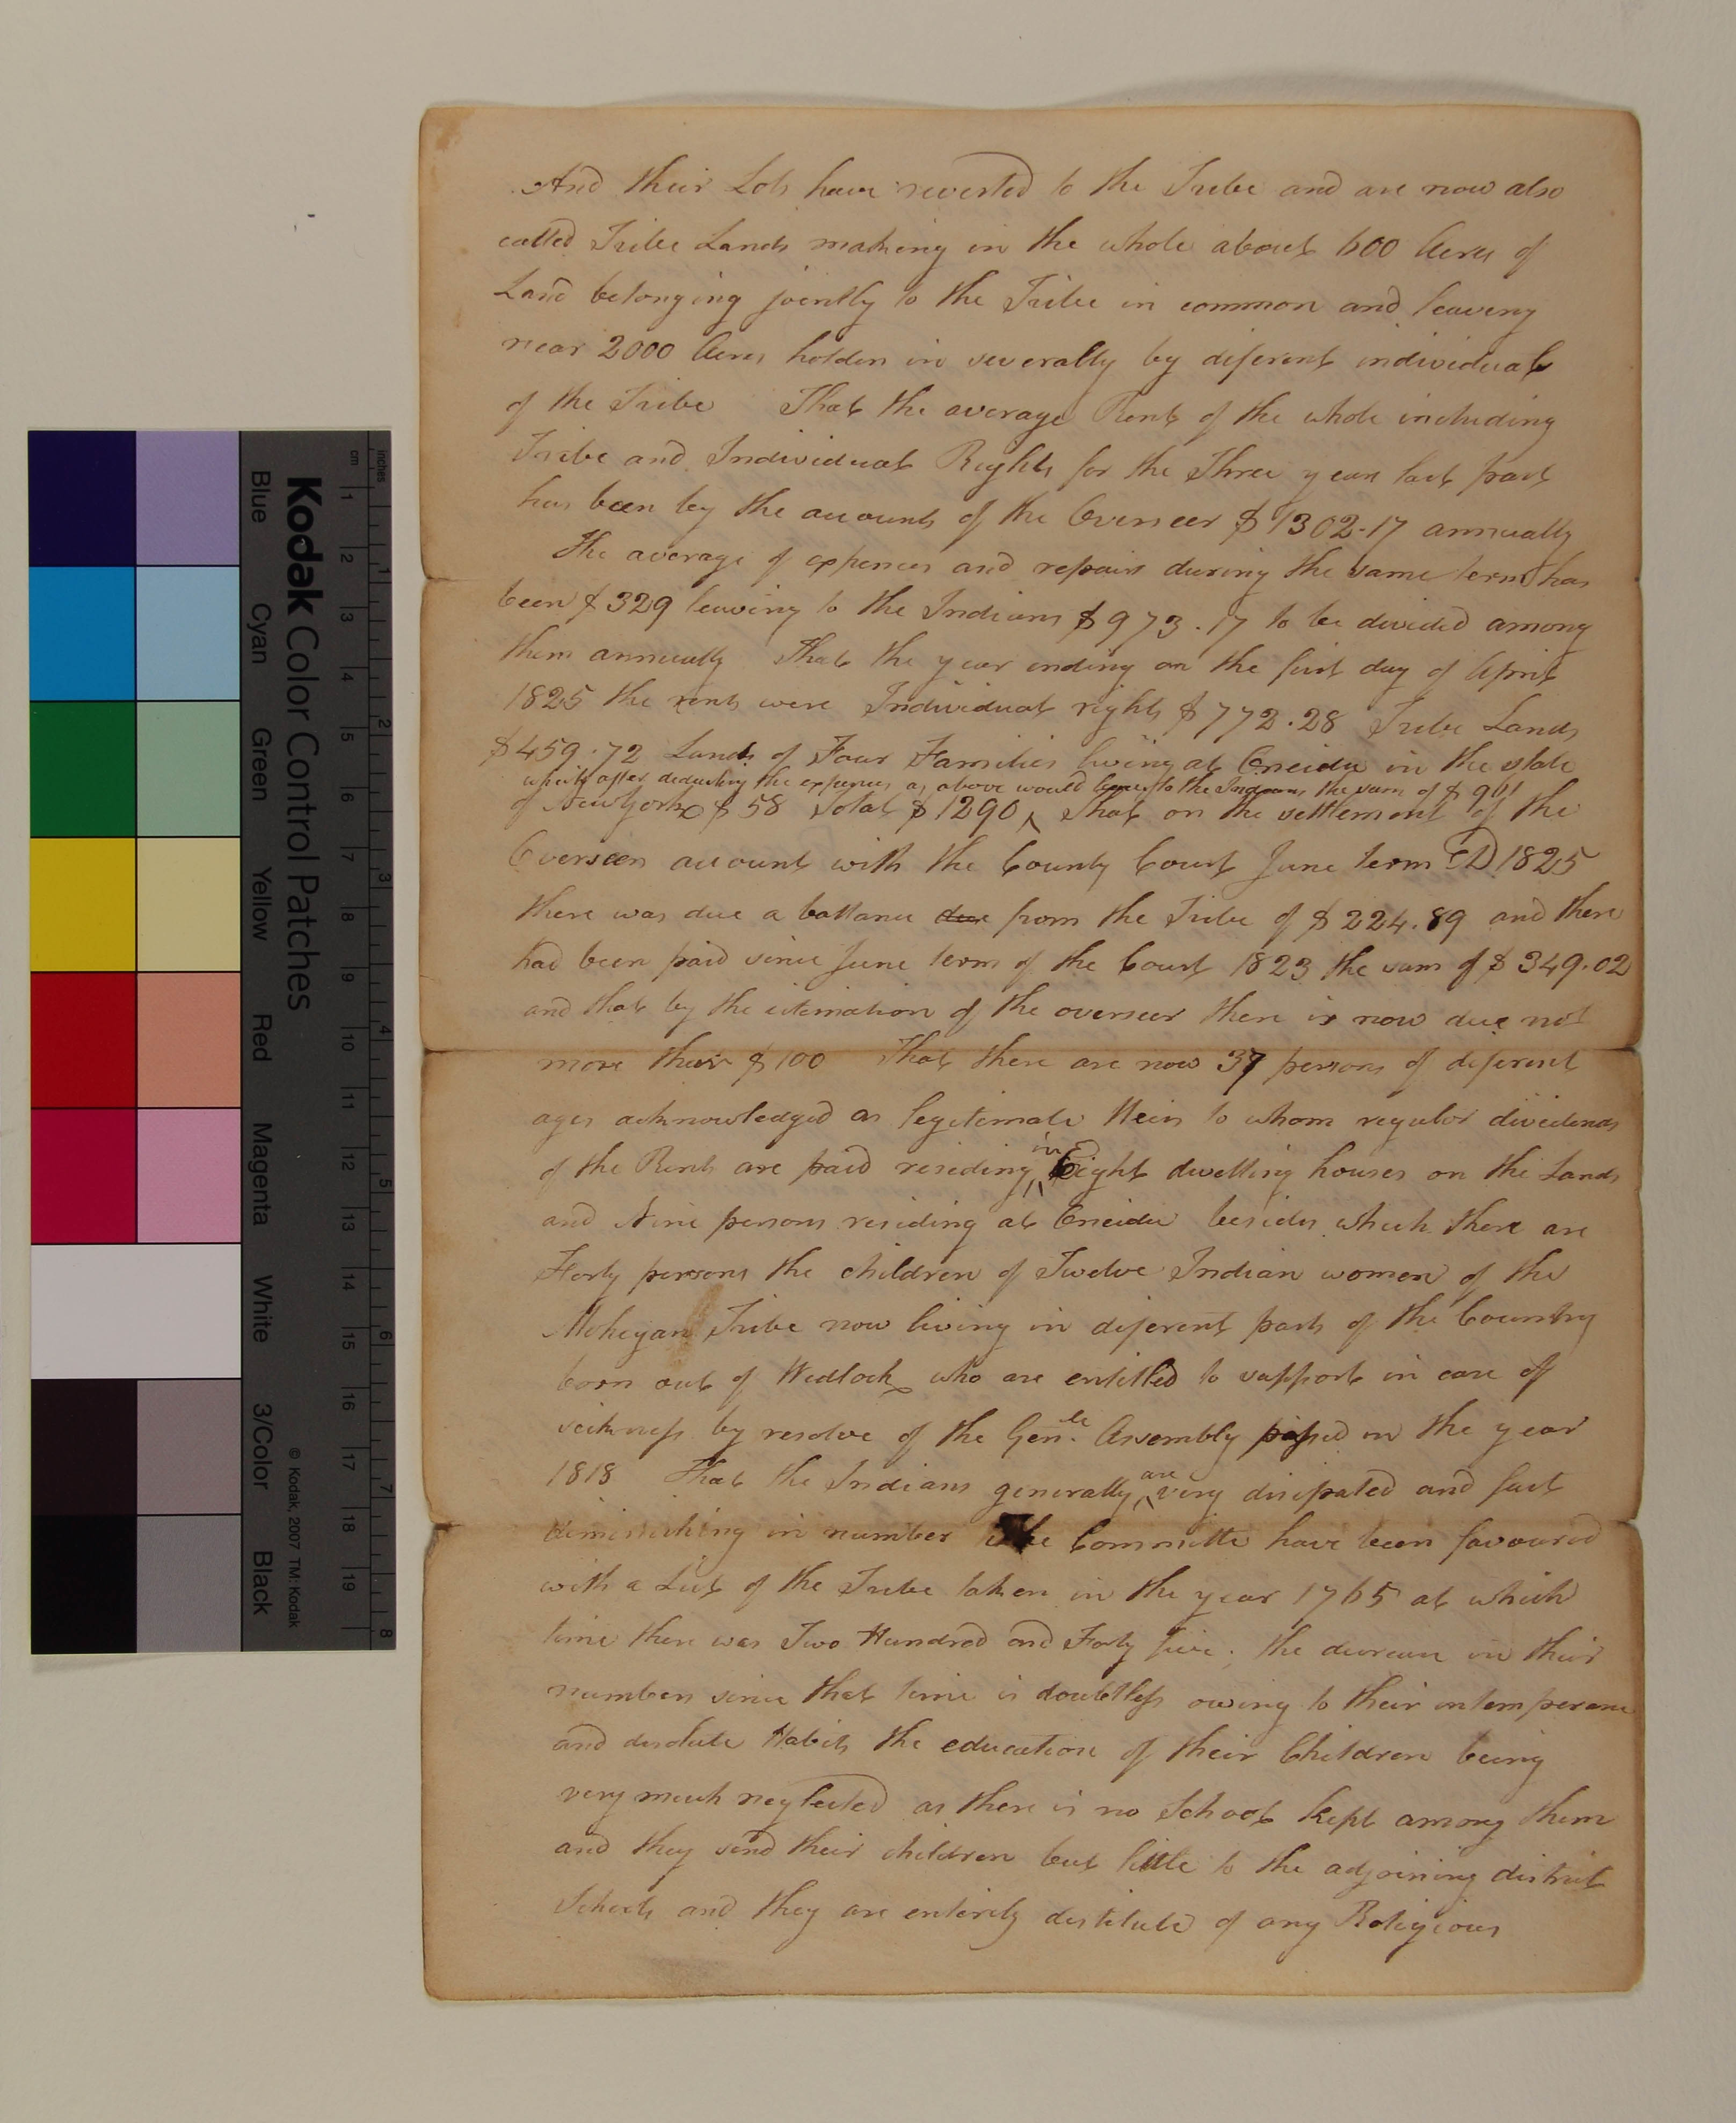 And their Lots have reverted to the Tribe and are now also
called Tribe Lands making in the whole about 600 Acres of
Land belonging jointly to the Tribe in common and leaving
near 2000 Acres holden in severalty by diferent individuals
of the Tribe That the average Rent of the whole including
Tribe and Individual Rights for the Three years last past
has been by the accounts of the Overseer $1302-17 annually
The average of expences and repairs during the same term has
been $329 leaving to the Indians $973.17 to be divided among
them annually That the year ending on the first day of April
1825 the rents were Individual rights $772.28 Tribe Lands
$459.72 Lands of Four Families living at Oneida in the state
which after deducting the expences as above would leave to the Indians the sum of $961
of New York $58 Total $1290 ^ That on the settlement of the
Overseers account with the County Court June term AD 1825
there was due a ballance due from the Tribe of $224.89 and there
had been paid since June term of the Court 1823 the sum of $349.02
and that by the estimation of the overseer there is now due not
more than $100 That there are now 37 persons of diferent
ages acknowledged as legitimate Heirs to whom regular dividends
in
of the Rents are paid residing ^ Eight dwelling houses on the Lands
and Nine persons residing at Oneida besides which there are
Forty persons the children of Twelve Indian women of the
Mohegan Tribe now living in diferent parts of the Country
born out of Wedlock who are entitled to support in case of
sickness by resolve of the Gen.le Assembly passed in the year
are
1818 That the Indians generally ^ very disipated and fast
diminishing in number The Committe have been favoured
with a List of the Tribe taken in the year 1765 at which
time there was Two Hundred and Forty five; the decrease in their
numbers since that time is doubtless owing to their intemperance
and desolute Habits the education of their Children being
very much neglected as there is no School kept among them
and they send their children but little to the adjoining district
Schools and they are entirely destitute of any Religious
Kodak Color Control Patches
Blue
Cyan
Green
Yellow
Red
Magenta
White
3/Color
Black
inches
1
2
3
4
5
6
7
8
cm
1
2
3
4
5
6
7
8
9
10
11
12
13
14
15
16
17
18
19
© Kodak, 2007 TM: Kodak